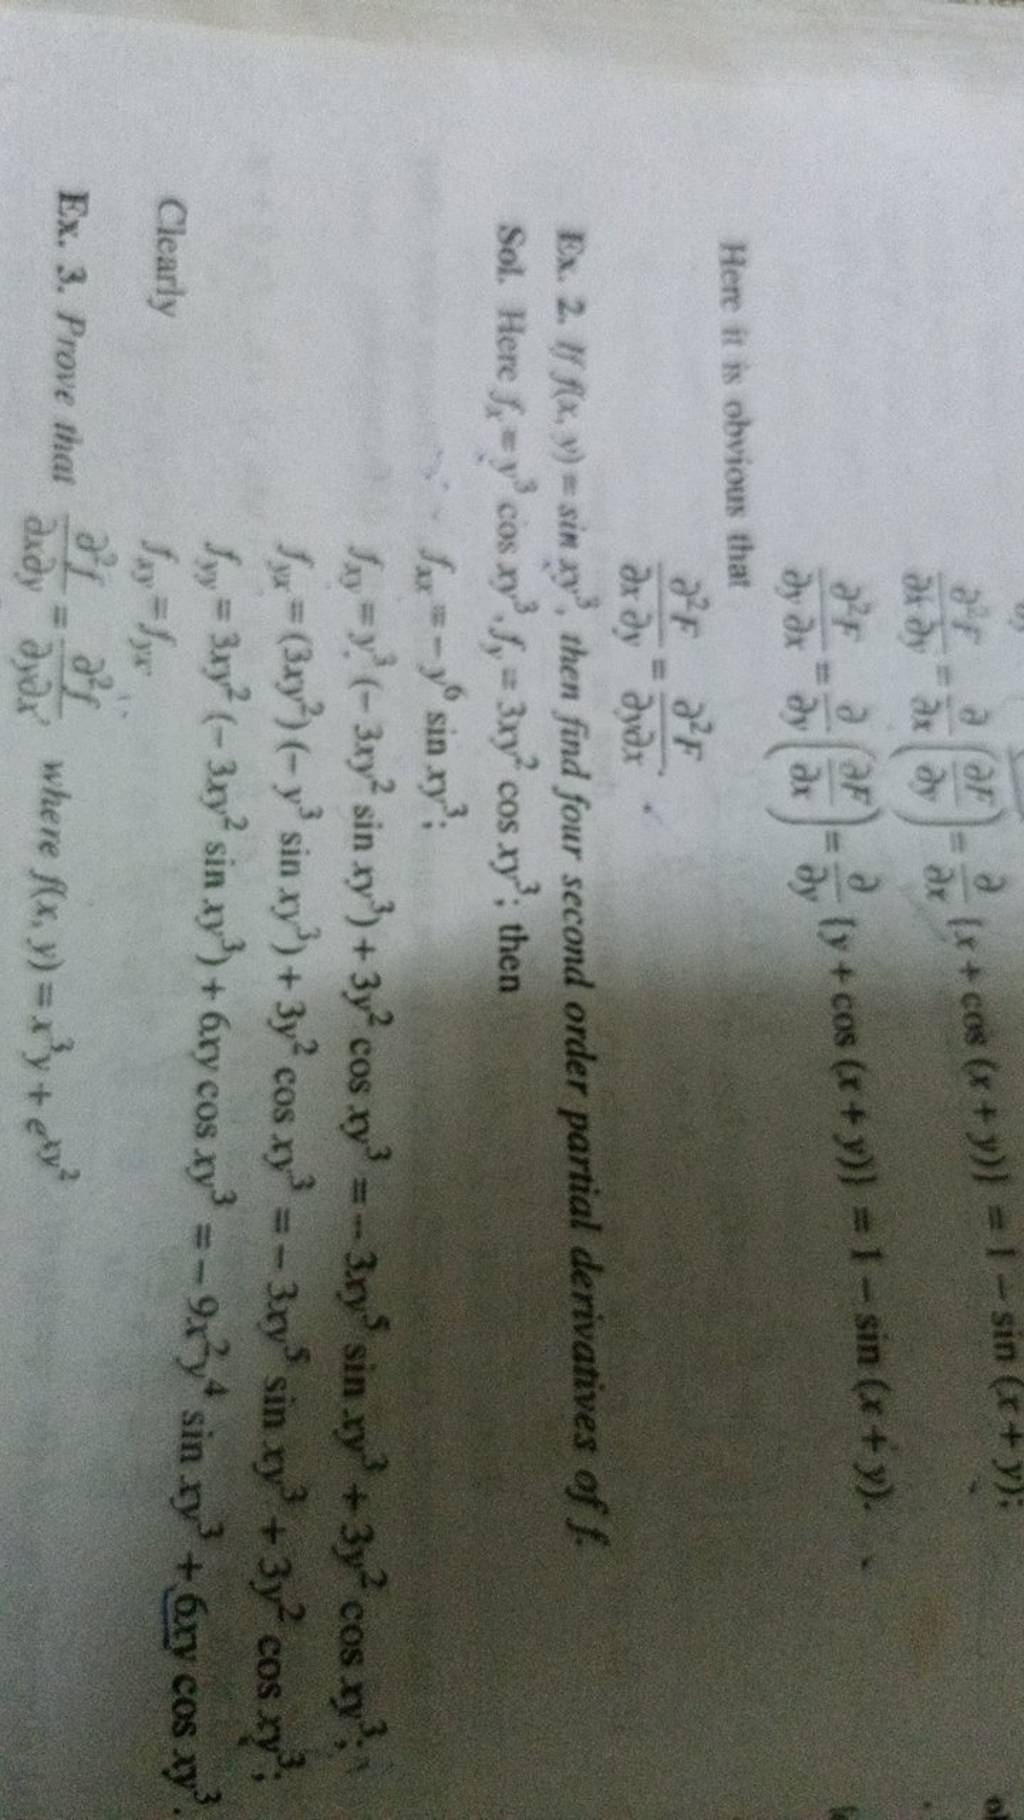 ∂²F/∂x ∂y = ∂/∂x (∂F/∂y) = ∂/∂x {x + cos (x + y)} = 1 – sin (x + y);
∂²F/∂y ∂x = ∂/∂y (∂F/∂x) = ∂/∂y {y + cos (x + y)} = 1 – sin (x + y).
Here it is obvious that
∂²F/∂x ∂y = ∂²F/∂y∂x.
Ex. 2. If f(x, y) = sin xy³, then find four second order partial derivatives of f.
Sol. Here fₓ = y³ cos xy³, f_y = 3xy² cos xy³; then
f_xx = – y⁶ sin xy³;
f_xy = y³ (– 3xy² sin xy³) + 3y² cos xy³ = – 3xy⁵ sin xy³ + 3y² cos xy³;
f_yx = (3xy²) (– y³ sin xy³) + 3y² cos xy³ = – 3xy⁵ sin xy³ + 3y² cos xy³;
f_yy = 3xy² (– 3xy² sin xy³) + 6xy cos xy³ = – 9x²y⁴ sin xy³ + 6xy cos xy³.
Clearly f_xy = f_yx.
Ex. 3. Prove that ∂²f/∂x∂y = ∂²f/∂y∂x, where f(x, y) = x³y + e^(xy²)